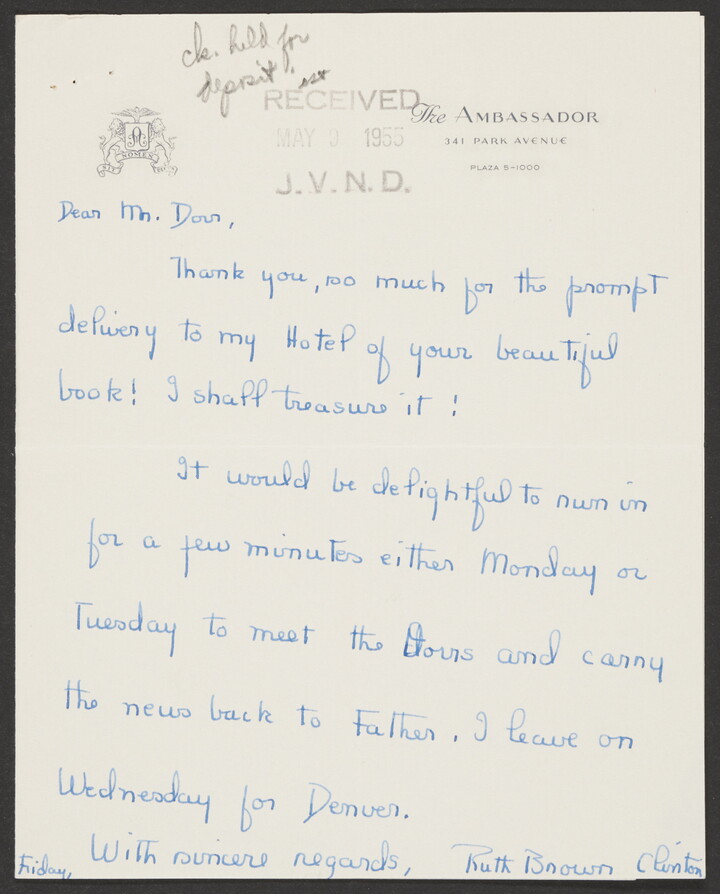 ck. held for
deposit
RECEIVED
MAY 9 1955
J.V.N.D.
The AMBASSADOR
341 PARK AVENUE
PLAZA 5-1000
Dear Mr. Dorr,
Thank you, so much for the prompt
delivery to my Hotel of your beautiful
book! I shall treasure it!
It would be delightful to run in
for a few minutes either Monday or
Tuesday to meet the Dorrs and carry
the news back to Father. I leave on
Wednesday for Denver.
With sincere regards, Ruth Brown Clinton
Friday,